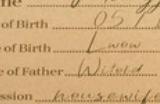 me
of Birth 05
e of Birth Lwow
e of Father Witold
ssion housewife